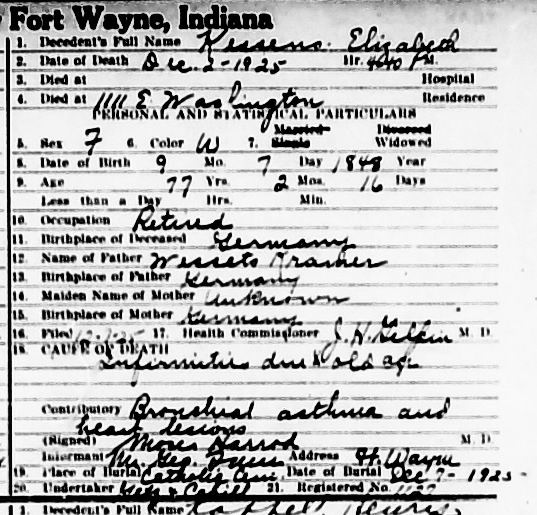 Fort Wayne, Indiana
1. Decedent's Full Name Kessens Elizabeth
2. Date of Death Dec. 2 - 1925 Hr. M.
3. Died at Hospital
4. Died at 1111 E. Washington Residence
PERSONAL AND STATISTICAL PARTICULARS
Married Divorced
5. Sex F 6. Color W 7. Single Widowed
8. Date of Birth 9 Mo. 7 Day 1848 Year
9. Age 77 Yrs. 2 Mos. 16 Days
Less than a Day Hrs. Min.
10. Occupation Retired
11. Birthplace of Deceased Germany
12. Name of Father Wessels Kramer
13. Birthplace of Father Germany
14. Maiden Name of Mother Unknown
15. Birthplace of Mother Germany
16. Filed 17. Health Commissioner J. H. Gilpin M. D.
18. CAUSE OF DEATH
Infirmities due to old age
Contributory Bronchial asthma and
heart lesions
(Signed) Morse Harrod M. D.
Informant Mr. Geo. Address Ft. Wayne
19. Place of Burial Catholic Cem. Date of Burial Dec 7 - 1925
20. Undertaker & Cahill 21. Registered No.
1. Decedent's Full Name